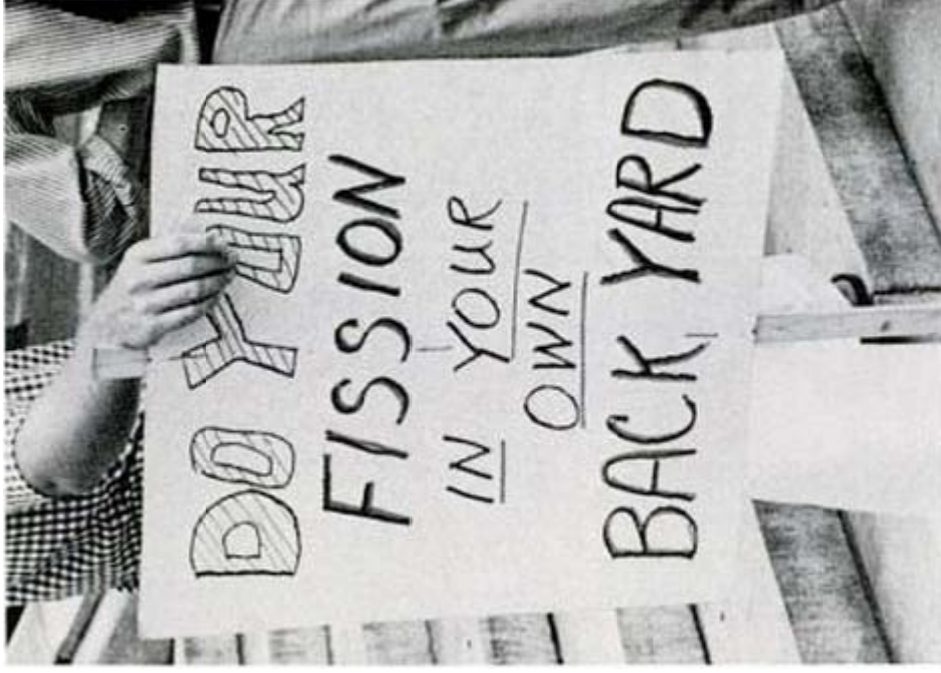 DO YOUR
FISSION
IN YOUR
OWN
BACK YARD